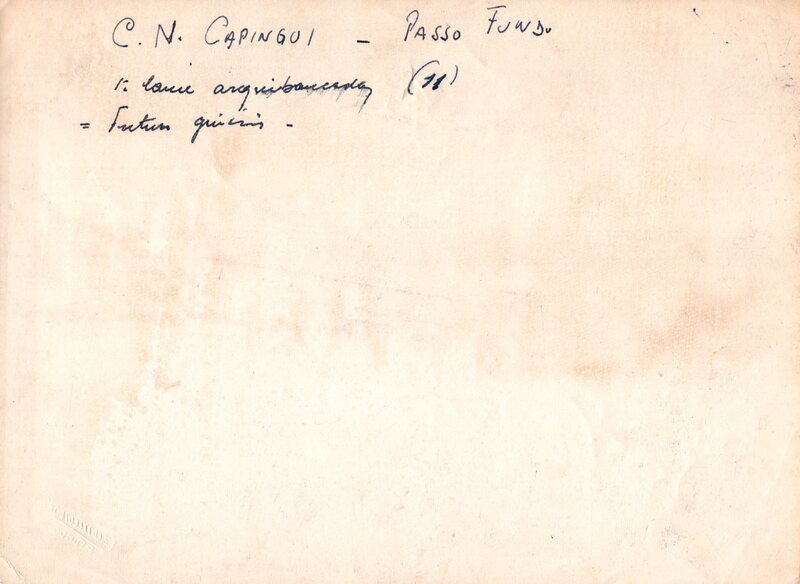 C. N. CAPINGUI - PASSO FUNDO
1º lance arquibancadas (11)
= Futuro ginásio -